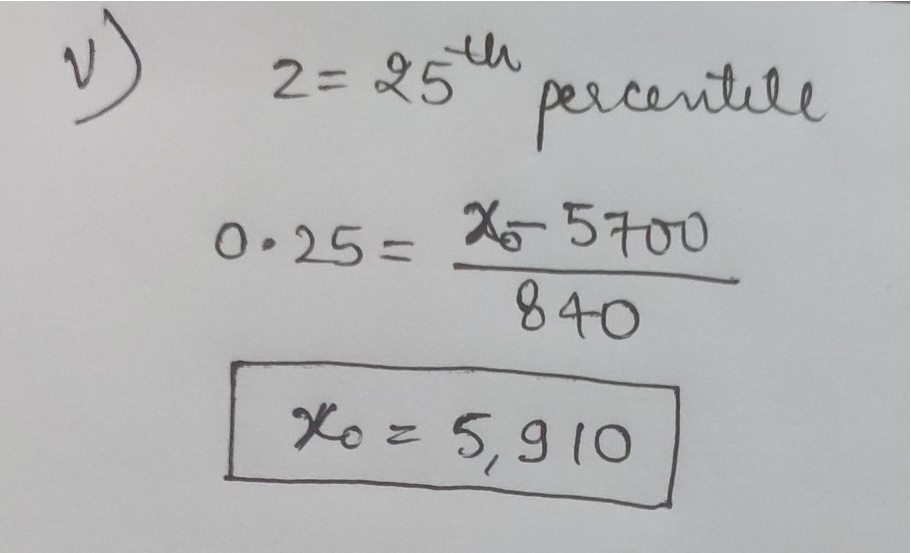 v) z = 25th percentile
0.25 = x₀ - 5700 / 840
x₀ = 5,910